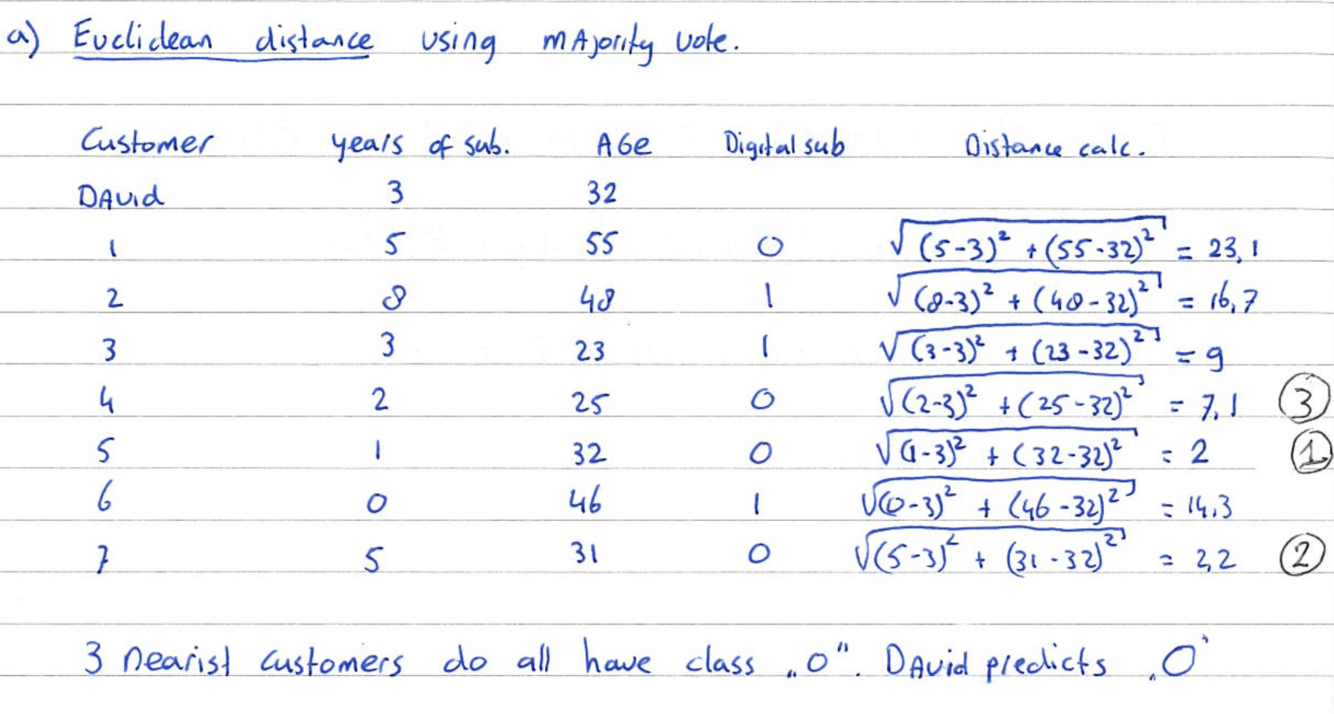 a) Euclidean distance using mAjority vote.
Customer years of sub. AGe Digital sub Distance calc.
DAvid 3 32
1 5 55 0 √(5-3)² + (55-32)² = 23,1
2 8 48 1 √(8-3)² + (48-32)² = 16,7
3 3 23 1 √(3-3)² + (23-32)² = 9
4 2 25 0 √(2-3)² + (25-32)² = 7,1 ③
5 1 32 0 √(1-3)² + (32-32)² = 2 ①
6 0 46 1 √(0-3)² + (46-32)² = 14,3
7 5 31 0 √(5-3)² + (31-32)² = 2,2 ②
3 nearist customers do all have class „0". DAvid predicts „0"